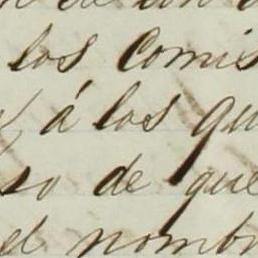 los Comis
á los qu
so de que
el nombr